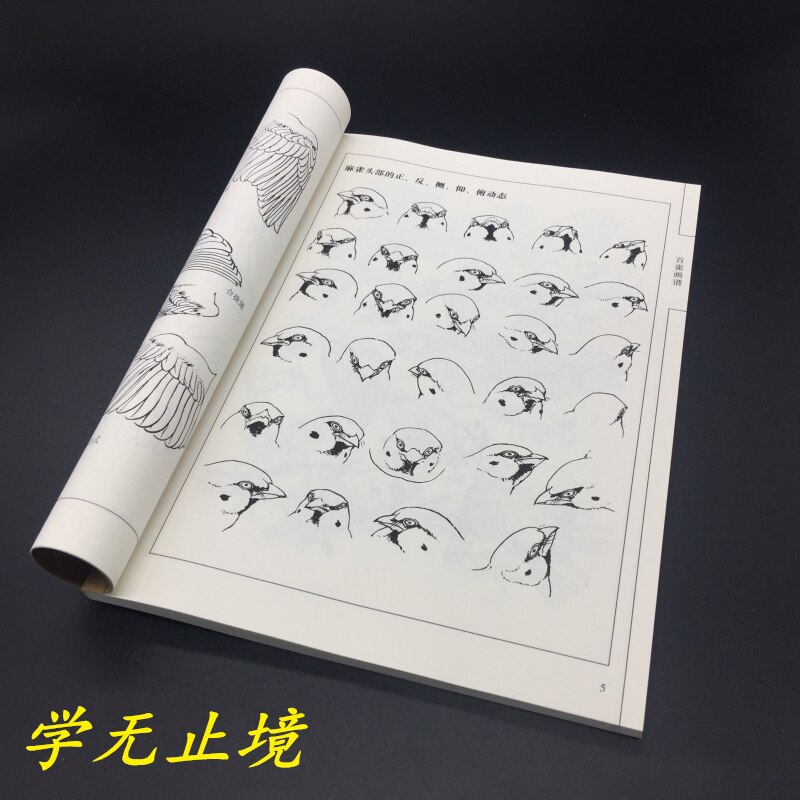 麻雀头部的正、反、侧、仰、俯动态
百雀画谱
合拢翅
5
学无止境